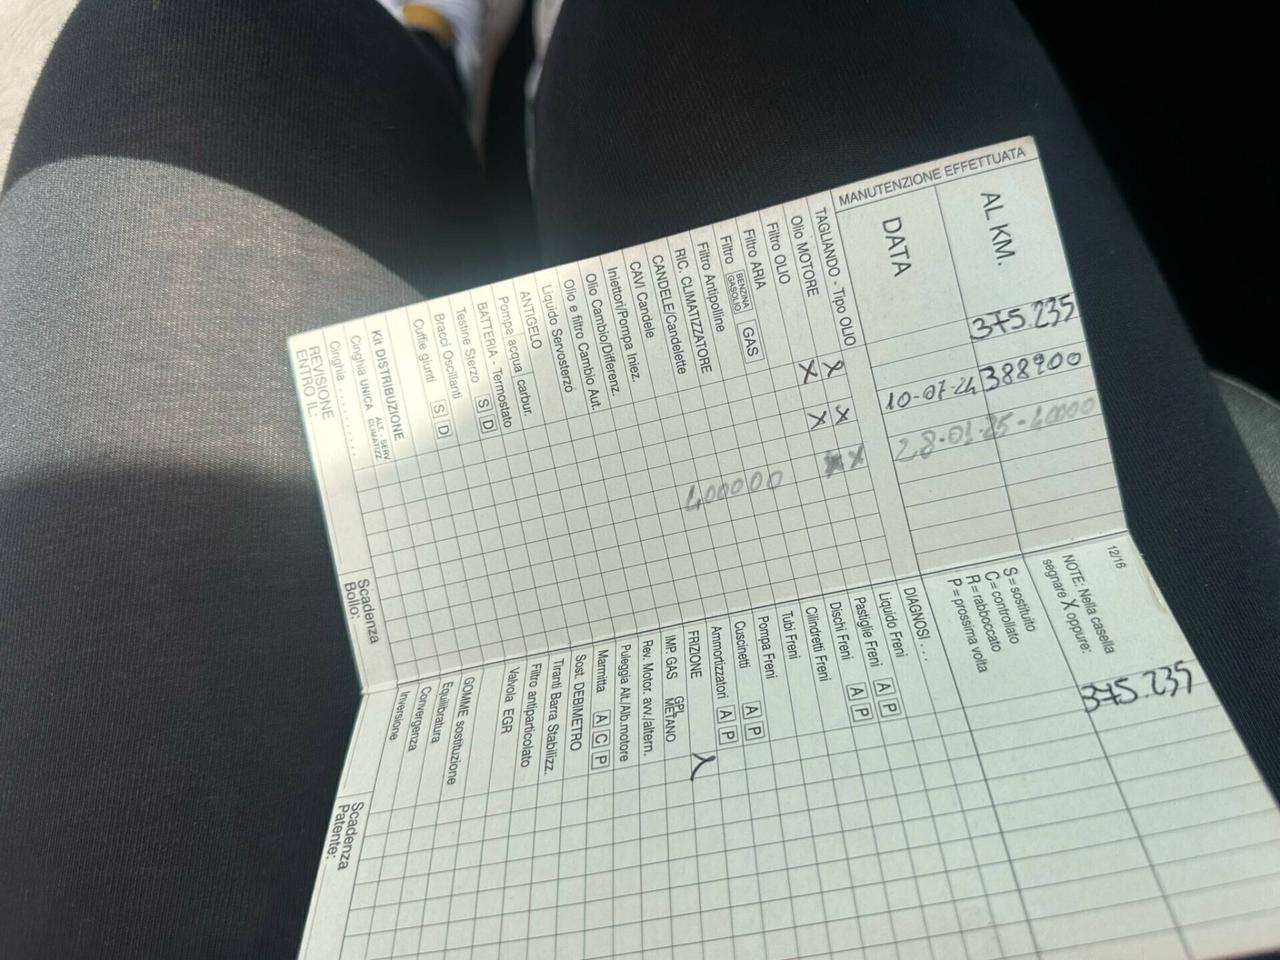 MANUTENZIONE EFFETTUATA
AL KM.
375.235
388900
DATA
10-07-24
TAGLIANDO - Tipo OLIO X X X
Olio MOTORE X X X
Filtro OLIO
Filtro ARIA
Filtro BENZINA GASOLIO GAS
Filtro Antipolline
RIC. CLIMATIZZATORE
CANDELE/Candelette
CAVI Candele
Iniettori/Pompa Iniez.
Olio Cambio/Differenz.
Olio e filtro Cambio Aut.
Liquido Servosterzo
ANTIGELO
Pompa acqua carbur.
BATTERIA - Termostato
Testine Sterzo S D
Bracci Oscillanti
Cuffie giunti S D
Kit DISTRIBUZIONE
Cinghia UNICA ALT. - SERV. CLIMATIZZ.
Cinghia ..........
REVISIONE
ENTRO IL:
Scadenza
Bollo:
12/16
NOTE: Nella casella
segnare X oppure:
S = sostituito
C = controllato
R = rabboccato
P = prossima volta
375.235
DIAGNOSI . . .
Liquido Freni
Pastiglie Freni A P
Dischi Freni A P
Cilindretti Freni
Tubi Freni
Pompa Freni
Cuscinetti A P
Ammortizzatori A P
FRIZIONE X
IMP. GAS GPL METANO
Rev. Motor. avv./altern.
Puleggia Alt./Alb.motore
Marmitta A C P
Sost. DEBIMETRO
Tiranti Barra Stabilizz.
Filtro antiparticolato
Valvola EGR
GOMME sostituzione
Equilibratura
Convergenza
Inversione
Scadenza
Patente: